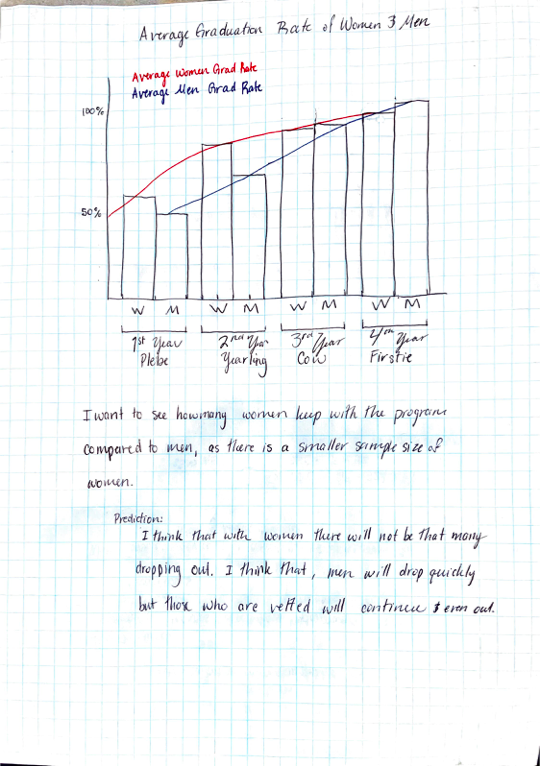 Average Graduation Rate of Women & Men
Average Women Grad Rate
Average Men Grad Rate
100%
50%
W M W M W M W M
1st Year 2nd Year 3rd Year 4th Year
Plebe Yearling Cow Firstie
I want to see howmany women keep with the program
compared to men, as there is a smaller sample size of
women.
Prediction:
I think that with women there will not be that many
dropping out. I think that, men will drop quickly
but those who are vetted will continue & even out.